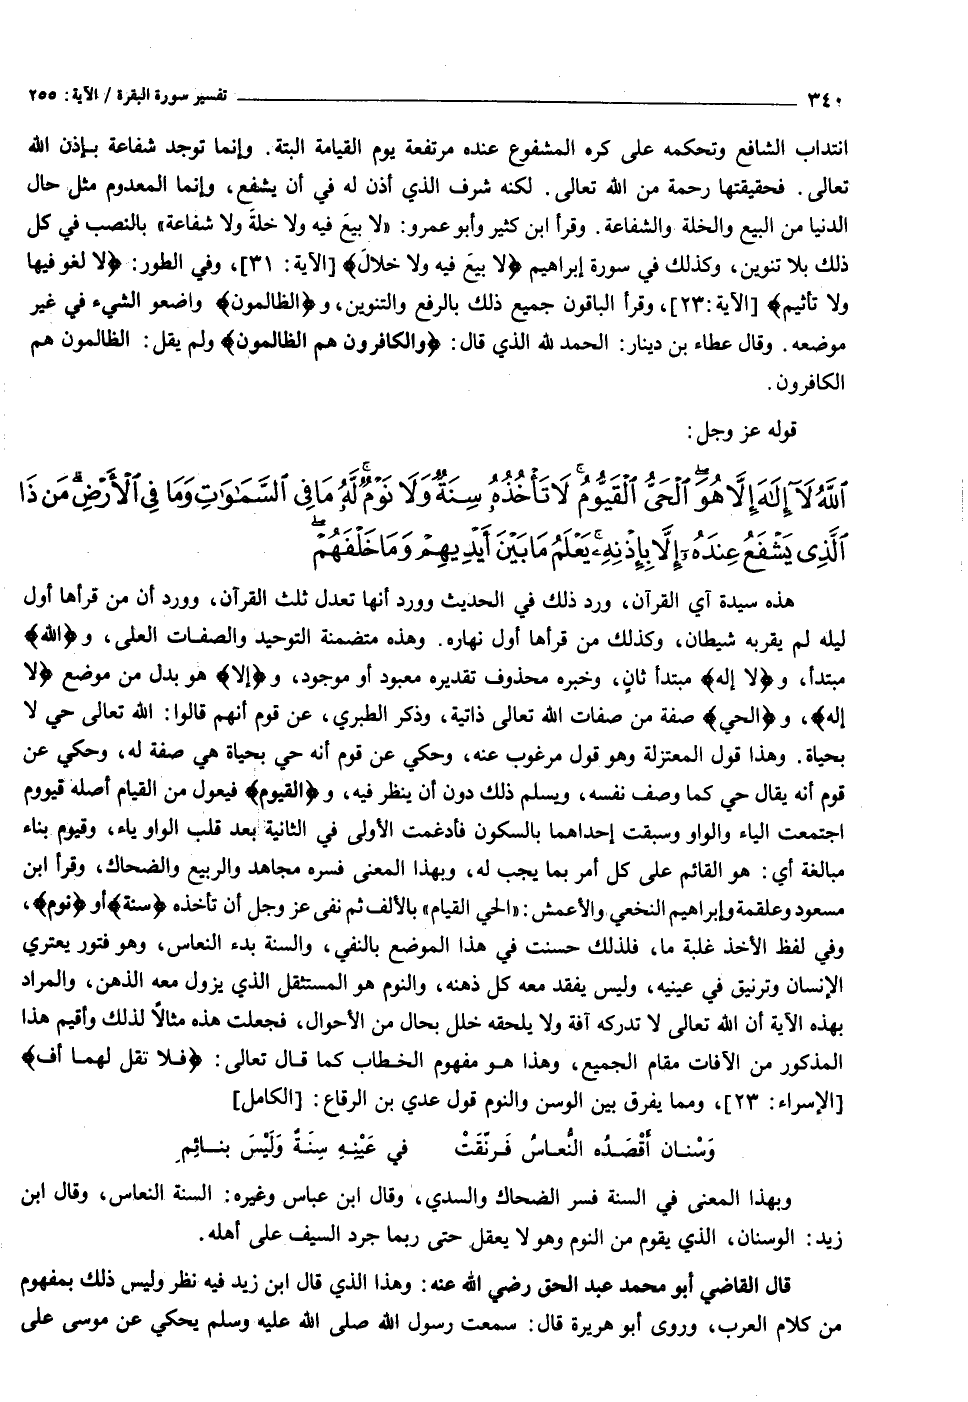 ٣٤٠ تفسير سورة البقرة / الآية: ٢٥٥
انتداب الشافع وتحكمه على كره المشفوع عنده مرتفعة يوم القيامة البتة. وإنما توجد شفاعة بإذن الله
تعالى. فحقيقتها رحمة من الله تعالى. لكنه شرف الذي أذن له في أن يشفع، وإنما المعدوم مثل حال
الدنيا من البيع والخلة والشفاعة. وقرأ ابن كثير وأبو عمرو: «لا بيعَ فيه ولا خلةَ ولا شفاعة» بالنصب في كل
ذلك بلا تنوين، وكذلك في سورة إبراهيم ﴿لا بيعَ فيه ولا خلالَ﴾ [الآية: ٣١]، وفي الطور: ﴿لا لغو فيها
ولا تأثيم﴾ [الآية:٢٣]، وقرأ الباقون جميع ذلك بالرفع والتنوين، و﴿الظالمون﴾ واضعو الشيء في غير
موضعه. وقال عطاء بن دينار: الحمد لله الذي قال: ﴿والكافرون هم الظالمون﴾ ولم يقل: الظالمون هم
الكافرون.
قوله عز وجل:
ٱللَّهُ لَآ إِلَٰهَ إِلَّا هُوَ ٱلْحَىُّ ٱلْقَيُّومُ ۚ لَا تَأْخُذُهُۥ سِنَةٌ وَلَا نَوْمٌ ۚ لَّهُۥ مَا فِى ٱلسَّمَٰوَٰتِ وَمَا فِى ٱلْأَرْضِ ۗ مَن ذَا
ٱلَّذِى يَشْفَعُ عِندَهُۥٓ إِلَّا بِإِذْنِهِۦ ۚ يَعْلَمُ مَا بَيْنَ أَيْدِيهِمْ وَمَا خَلْفَهُمْ ۖ
هذه سيدة آي القرآن، ورد ذلك في الحديث وورد أنها تعدل ثلث القرآن، وورد أن من قرأها أول
ليله لم يقربه شيطان، وكذلك من قرأها أول نهاره. وهذه متضمنة التوحيد والصفات العلى، و﴿الله﴾
مبتدأ، و﴿لا إله﴾ مبتدأ ثانٍ، وخبره محذوف تقديره معبود أو موجود، و﴿إلا﴾ هو بدل من موضع ﴿لا
إله﴾، و﴿الحي﴾ صفة من صفات الله تعالى ذاتية، وذكر الطبري، عن قوم أنهم قالوا: الله تعالى حي لا
بحياة. وهذا قول المعتزلة وهو قول مرغوب عنه، وحكي عن قوم أنه حي بحياة هي صفة له، وحكي عن
قوم أنه يقال حي كما وصف نفسه، ويسلم ذلك دون أن ينظر فيه، و﴿القيوم﴾ فيعول من القيام أصله قيووم
اجتمعت الياء والواو وسبقت إحداهما بالسكون فأدغمت الأولى في الثانية بعد قلب الواو ياء، وقيوم بناء
مبالغة أي: هو القائم على كل أمر بما يجب له، وبهذا المعنى فسره مجاهد والربيع والضحاك، وقرأ ابن
مسعود وعلقمة وإبراهيم النخعي والأعمش: «الحي القيام» بالألف ثم نفى عز وجل أن تأخذه ﴿سنة﴾ أو ﴿نوم﴾،
وفي لفظ الأخذ غلبة ما، فلذلك حسنت في هذا الموضع بالنفي، والسنة بدء النعاس، وهو فتور يعتري
الإنسان وترنيق في عينيه، وليس يفقد معه كل ذهنه، والنوم هو المستثقل الذي يزول معه الذهن، والمراد
بهذه الآية أن الله تعالى لا تدركه آفة ولا يلحقه خلل بحال من الأحوال، فجعلت هذه مثالاً لذلك وأقيم هذا
المذكور من الآفات مقام الجميع، وهذا هو مفهوم الخطاب كما قال تعالى: ﴿فلا تقل لهما أف﴾
[الإسراء: ٢٣]، ومما يفرق بين الوسن والنوم قول عدي بن الرقاع: [الكامل]
وَسْنان أَقْصَدَه النُّعاسُ فَرنَّقَتْ في عَيْنِهِ سِنَةٌ وَلَيْسَ بنائِمِ
وبهذا المعنى في السنة فسر الضحاك والسدي، وقال ابن عباس وغيره: السنة النعاس، وقال ابن
زيد: الوسنان، الذي يقوم من النوم وهو لا يعقل حتى ربما جرد السيف على أهله.
قال القاضي أبو محمد عبد الحق رضي الله عنه: وهذا الذي قال ابن زيد فيه نظر وليس ذلك بمفهوم
من كلام العرب، وروى أبو هريرة قال: سمعت رسول الله صلى الله عليه وسلم يحكي عن موسى على